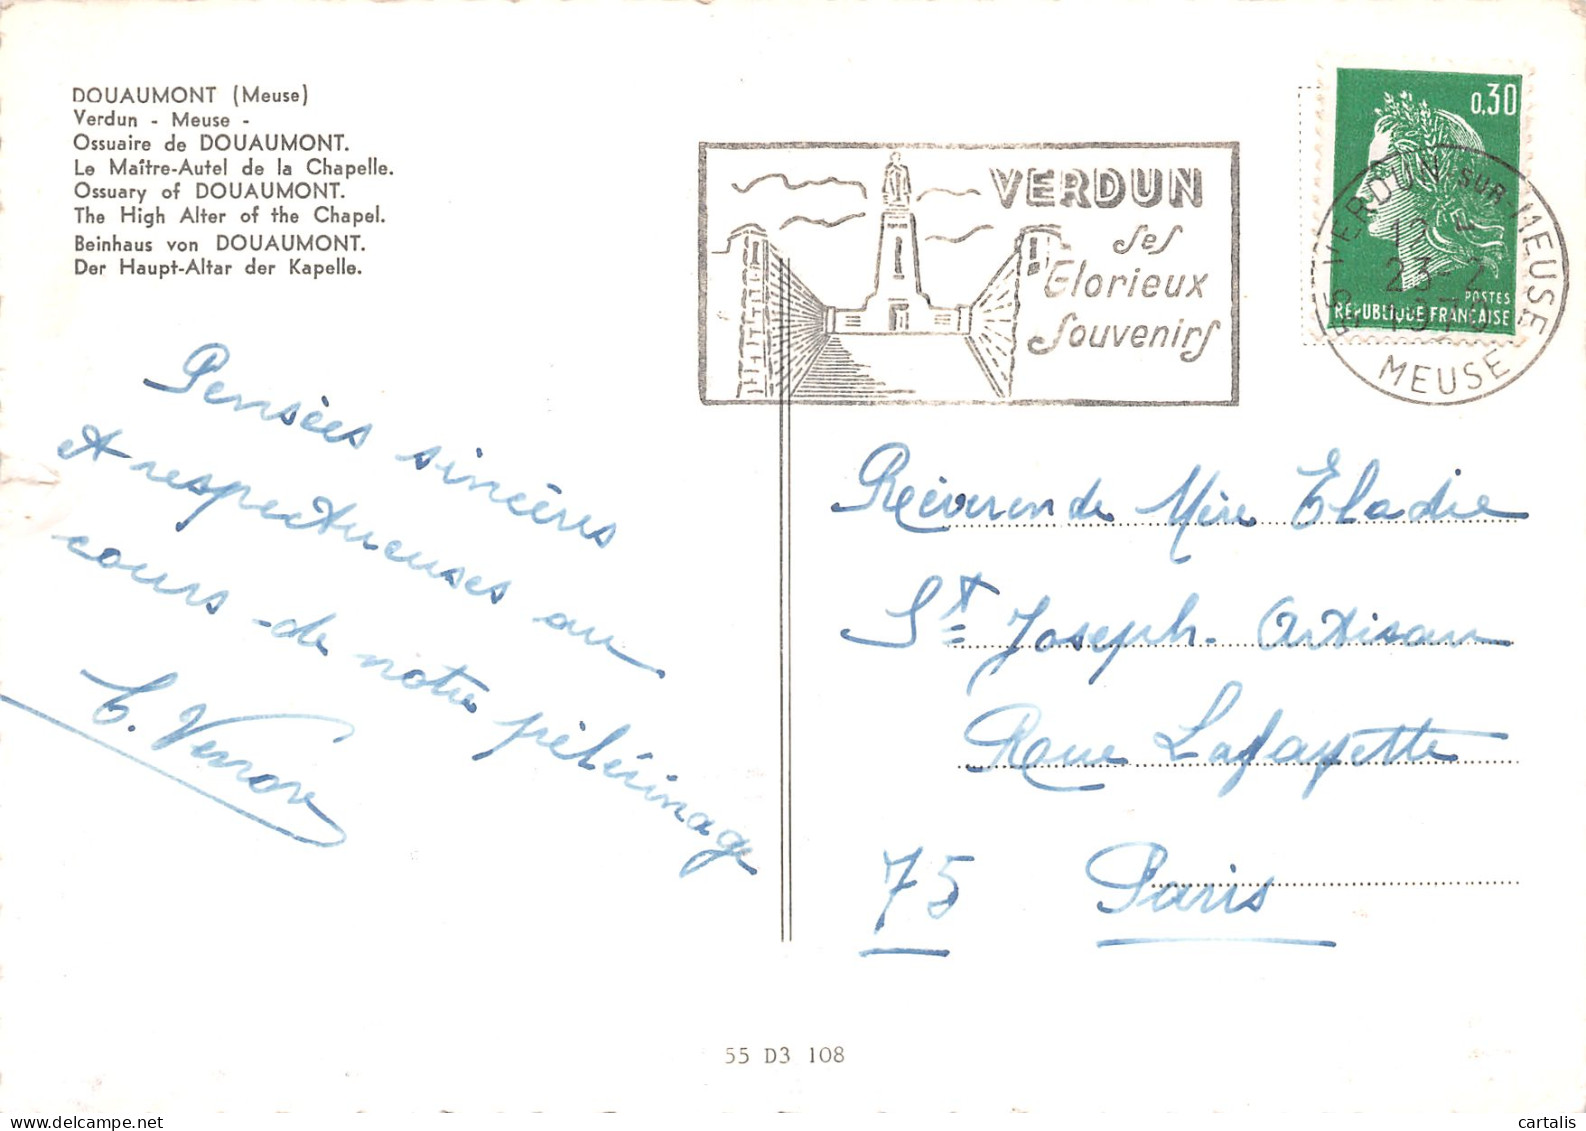 DOUAUMONT (Meuse)
Verdun - Meuse -
Ossuaire de DOUAUMONT.
Le Maître-Autel de la Chapelle.
Ossuary of DOUAUMONT.
The High Alter of the Chapel.
Beinhaus von DOUAUMONT.
Der Haupt-Altar der Kapelle.
VERDUN
ses
Glorieux
Souvenirs
0,30
POSTES
REPUBLIQUE FRANÇAISE
55 VERDUN SUR MEUSE
23-2
MEUSE
Pensées sincères
et respectueuses au
cours de notre pélérinage
Réverende Mère Eladie
St Joseph. Artisan
Rue Lafayette
75 Paris
55 D3 108
cartalis